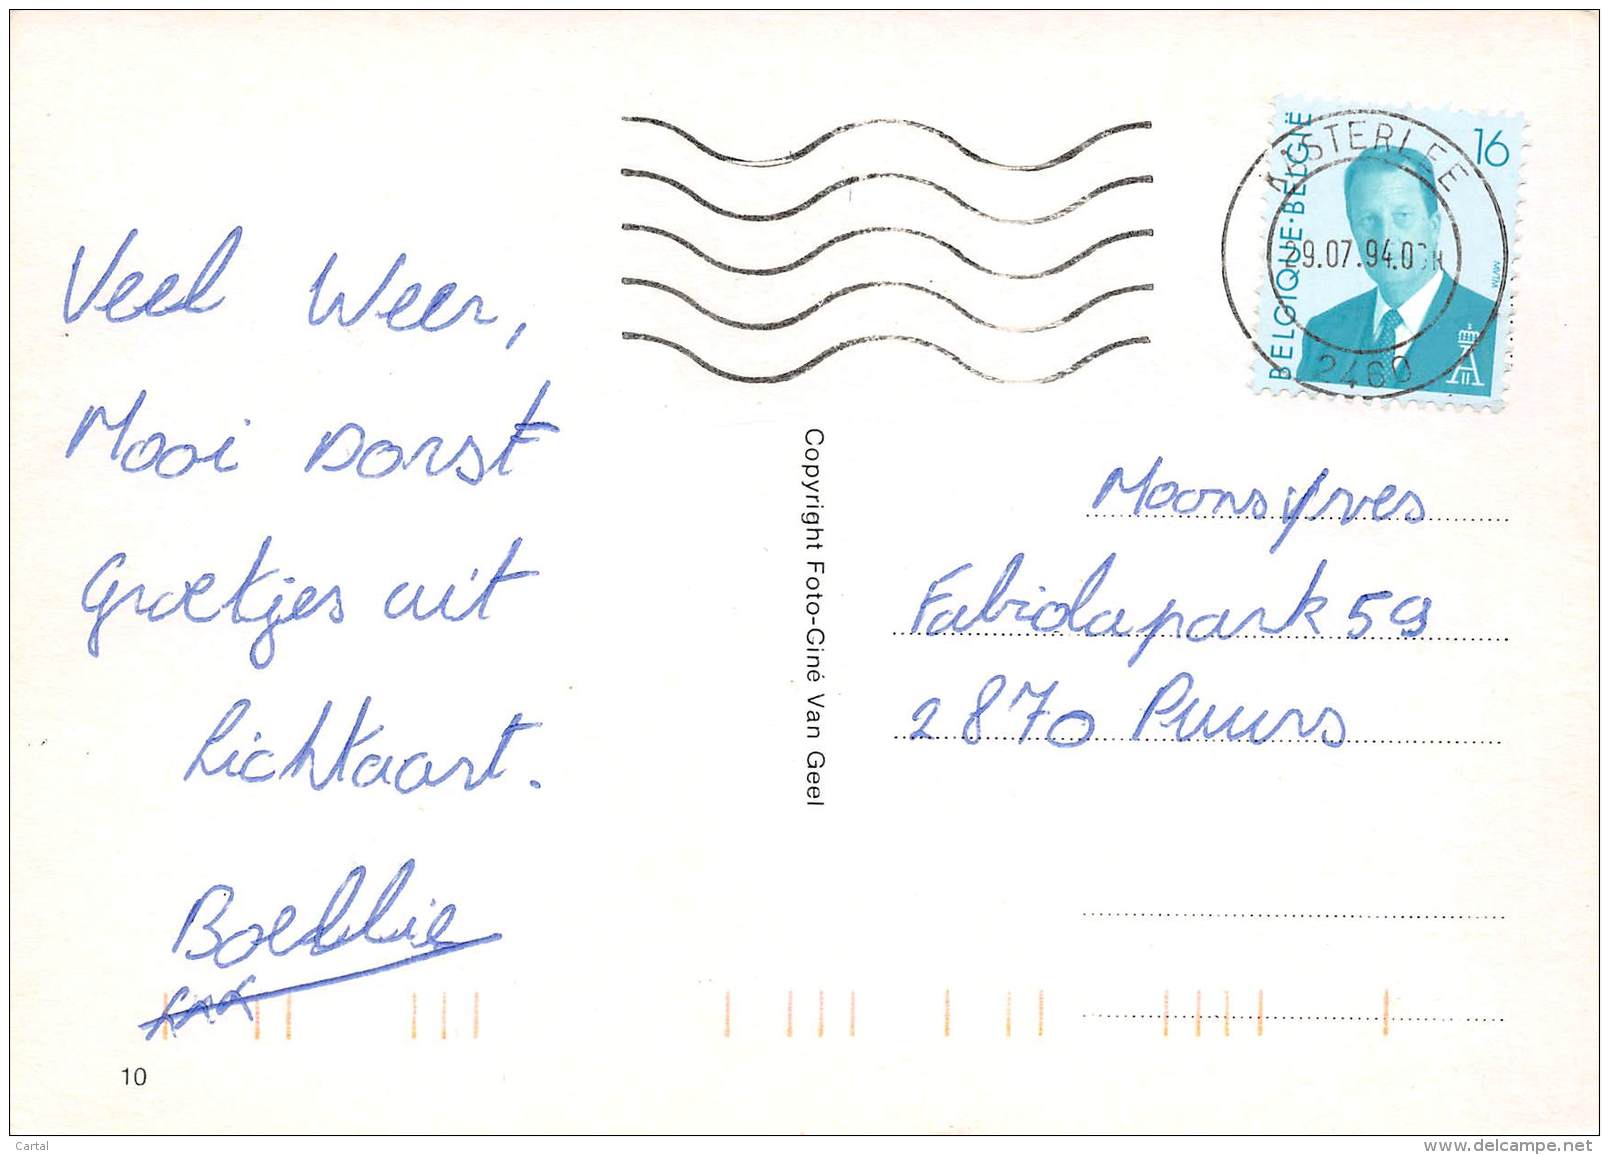 BELGIQUE·BELGIË
16
MVTM
KASTERLEE
29.07.94.0 H
2460
Veel Weer,
Mooi Dorst
Groetjes uit
Lichtaart.
Boellie
xxx
Copyright Foto-Giné Van Geel
Moons yves
Fabiolapark 59
2870 Puurs
10
Cartal
www.delcampe.net